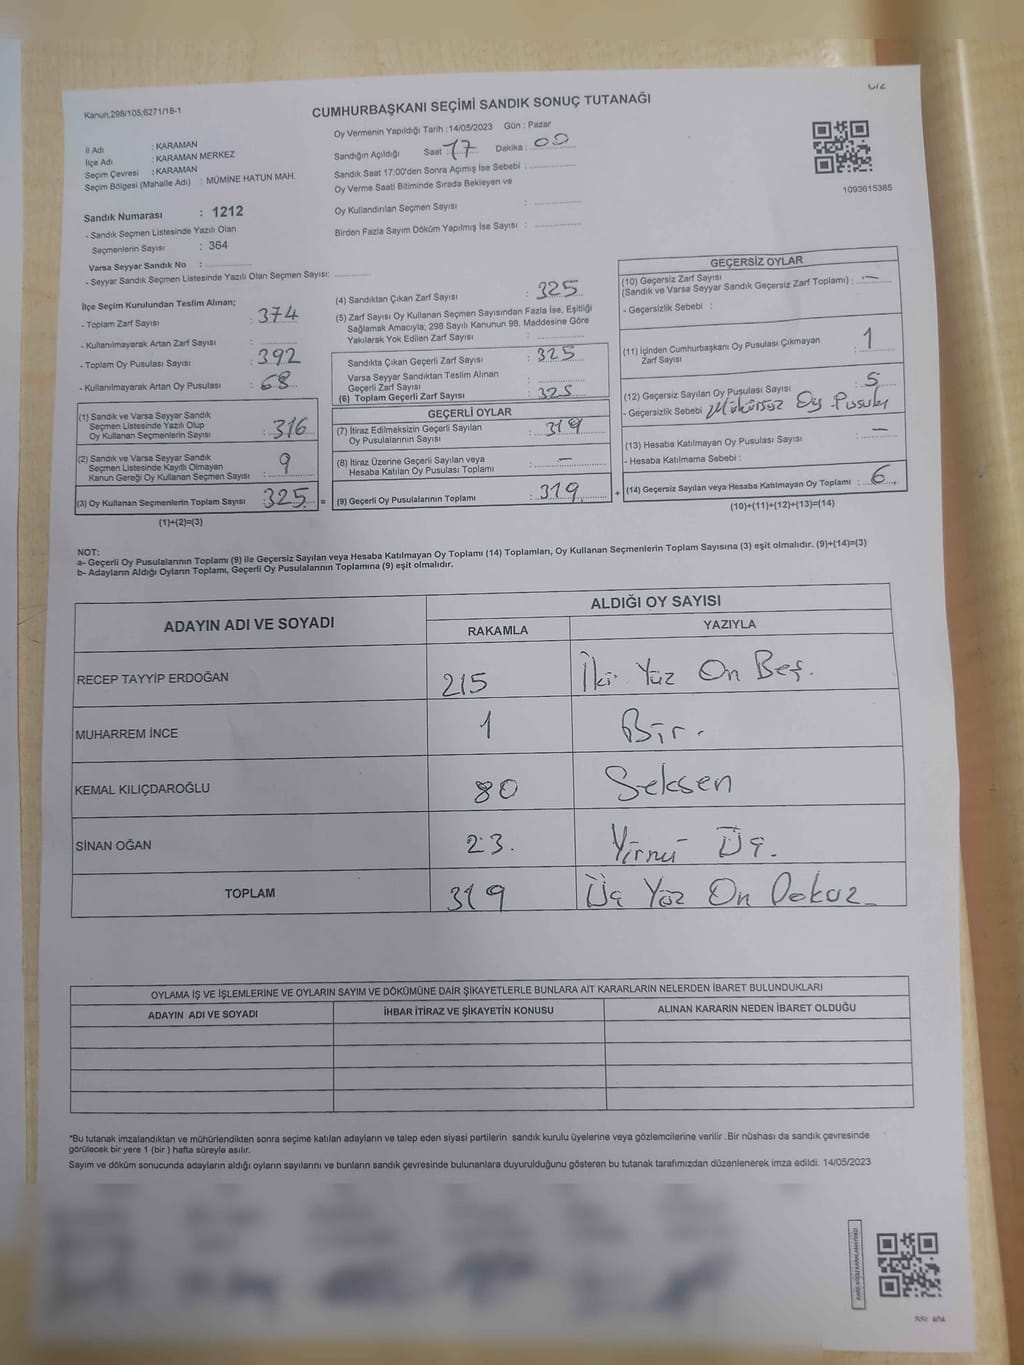 Kanun;298/105;6271/18-1
CUMHURBAŞKANI SEÇİMİ SANDIK SONUÇ TUTANAĞI
Oy Vermenin Yapıldığı Tarih :14/05/2023 Gün : Pazar
İl Adı : KARAMAN
İlçe Adı : KARAMAN MERKEZ
Seçim Çevresi : KARAMAN
Seçim Bölgesi (Mahalle Adı) : MÜMİNE HATUN MAH.
Sandığın Açıldığı Saat : 17 Dakika : 00
Sandık Saat 17:00'den Sonra Açımış İse Sebebi :
Oy Verme Saati Bitiminde Sırada Bekleyen ve
Oy Kullandırılan Seçmen Sayısı :
Birden Fazla Sayım Döküm Yapılmış İse Sayısı :
1093615385
Sandık Numarası : 1212
- Sandık Seçmen Listesinde Yazılı Olan
Seçmenlerin Sayısı : 364
Varsa Seyyar Sandık No :
- Seyyar Sandık Seçmen Listesinde Yazılı Olan Seçmen Sayısı:
İlçe Seçim Kurulundan Teslim Alınan;
- Toplam Zarf Sayısı : 374
- Kullanılmayarak Artan Zarf Sayısı :
- Toplam Oy Pusulası Sayısı : 392
- Kullanılmayarak Artan Oy Pusulası : 68
(1) Sandık ve Varsa Seyyar Sandık
Seçmen Listesinde Yazılı Olup
Oy Kullanan Seçmenlerin Sayısı : 316
(2) Sandık ve Varsa Seyyar Sandık
Seçmen Listesinde Kayıtlı Olmayan
Kanun Gereği Oy Kullanan Seçmen Sayısı : 9
(3) Oy Kullanan Seçmenlerin Toplam Sayısı : 325 =
(1)+(2)=(3)
(4) Sandıktan Çıkan Zarf Sayısı : 325
(5) Zarf Sayısı Oy Kullanan Seçmen Sayısından Fazla İse, Eşitliği
Sağlamak Amacıyla; 298 Sayılı Kanunun 98. Maddesine Göre
Yakılarak Yok Edilen Zarf Sayısı :
Sandıkta Çıkan Geçerli Zarf Sayısı : 325
Varsa Seyyar Sandıktan Teslim Alınan
Geçerli Zarf Sayısı :
(6) Toplam Geçerli Zarf Sayısı : 325
GEÇERLİ OYLAR
(7) İtiraz Edilmeksizin Geçerli Sayılan
Oy Pusulalarının Sayısı : 319
(8) İtiraz Üzerine Geçerli Sayılan veya
Hesaba Katılan Oy Pusulası Toplamı : —
(9) Geçerli Oy Pusulalarının Toplamı : 319 +
GEÇERSİZ OYLAR
(10) Geçersiz Zarf Sayısı
(Sandık ve Varsa Seyyar Sandık Geçersiz Zarf Toplamı) : —
- Geçersizlik Sebebi :
(11) İçinden Cumhurbaşkanı Oy Pusulası Çıkmayan
Zarf Sayısı : 1
(12) Geçersiz Sayılan Oy Pusulası Sayısı : 5
- Geçersizlik Sebebi Mühürsüz Oy Pusulası
(13) Hesaba Katılmayan Oy Pusulası Sayısı : —
- Hesaba Katılmama Sebebi :
(14) Geçersiz Sayılan veya Hesaba Katılmayan Oy Toplamı : 6
(10)+(11)+(12)+(13)=(14)
NOT:
a- Geçerli Oy Pusulalarının Toplamı (9) ile Geçersiz Sayılan veya Hesaba Katılmayan Oy Toplamı (14) Toplamları, Oy Kullanan Seçmenlerin Toplam Sayısına (3) eşit olmalıdır. (9)+(14)=(3)
b- Adayların Aldığı Oyların Toplamı, Geçerli Oy Pusulalarının Toplamına (9) eşit olmalıdır.
ADAYIN ADI VE SOYADI
ALDIĞI OY SAYISI
RAKAMLA YAZIYLA
RECEP TAYYİP ERDOĞAN 215 İki Yüz On Beş.
MUHARREM İNCE 1 Bir.
KEMAL KILIÇDAROĞLU 80 Seksen
SİNAN OĞAN 23. Yirmi Üç.
TOPLAM 319 Üç Yüz On Dokuz
OYLAMA İŞ VE İŞLEMLERİNE VE OYLARIN SAYIM VE DÖKÜMÜNE DAİR ŞİKAYETLERLE BUNLARA AİT KARARLARIN NELERDEN İBARET BULUNDUKLARI
ADAYIN ADI VE SOYADI İHBAR İTİRAZ VE ŞİKAYETİN KONUSU ALINAN KARARIN NEDEN İBARET OLDUĞU
*Bu tutanak imzalandıktan ve mühürlendikten sonra seçime katılan adayların ve talep eden siyasi partilerin sandık kurulu üyelerine veya gözlemcilerine verilir .Bir nüshası da sandık çevresinde
görülecek bir yere 1 (bir ) hafta süreyle asılır.
Sayım ve döküm sonucunda adayların aldığı oyların sayılarını ve bunların sandık çevresinde bulunanlara duyurulduğunu gösteren bu tutanak tarafımızdan düzenlenerek imza edildi. 14/05/2023